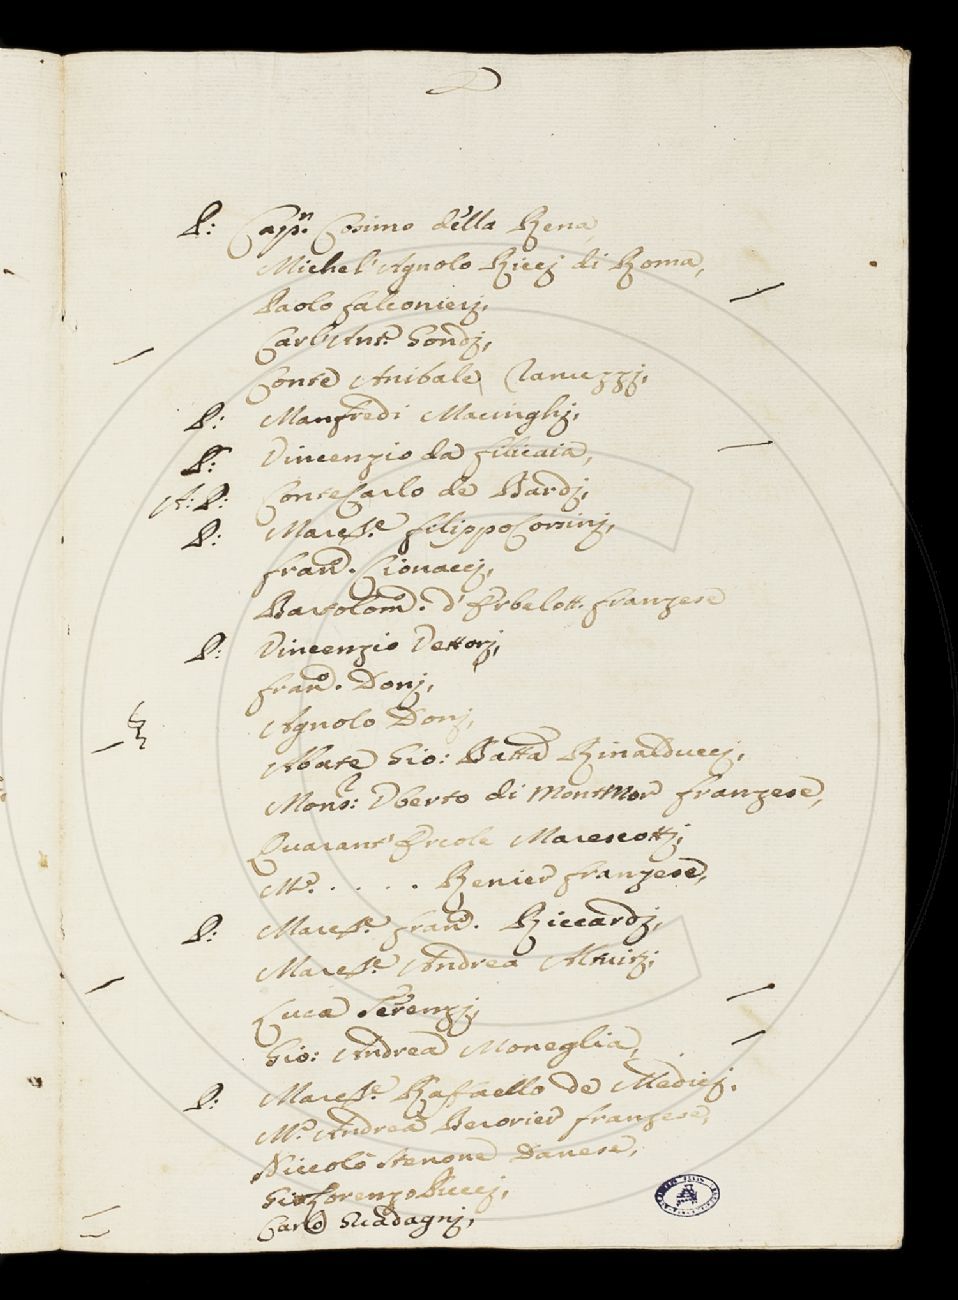 P: Cap.n Cosimo della Rena,
Michel'Agnolo Riccj di Roma,
Paolo falconierj,
Carl'Ant.o Gondj,
Conte Anibale Ranuzzj,
P: Manfredi Macinghj,
P: Vincenzio da filicaia,
A: P: Conte Carlo de Bardj,
P: March.e filippo Corsinj,
fran.o Cionaccj,
Bartolom.o d'Erbelott. franzese
P: Vincenzio Vettorj,
fran.o Donj,
Agnolo Donj,
Abate Gio: Batta Rinalduccj,
Mons: Uberto di MontMor franzese,
Quarant'Ercole Marescottj,
M.r . . . . Renier franzese,
P: March.e fran.o Riccardj,
March.e Andrea Altuitj,
Luca Terenzj,
Gio: Andrea Moneglia,
P: March.e Raffaello de Medicj,
M.r Andrea franzese,
Niccolò Stenone Danese,
Lorenzo Riccj,
Carlo Guadagnj,